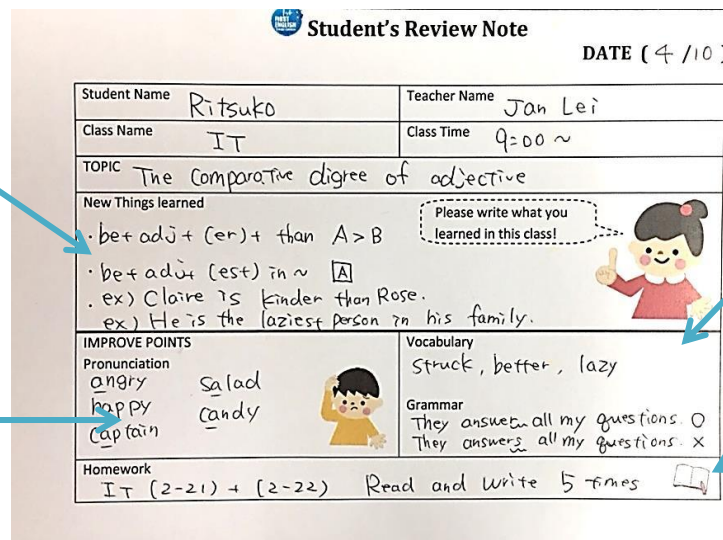 FIRST ENGLISH
Student's Review Note
DATE ( 4 /10 )
Student Name Ritsuko
Teacher Name Jan Lei
Class Name IT
Class Time 9:00 ~
TOPIC The comparative digree of adjective
New Things learned
Please write what you
learned in this class!
· be + adj + (er) + than A > B
· be + adj + (est) in ~ A
. ex) Claire is kinder than Rose.
ex) He is the laziest person in his family.
IMPROVE POINTS
Pronunciation
angry salad
happy candy
captain
Vocabulary
struck, better, lazy
Grammar
They answer all my questions. O
They answers all my questions. X
Homework
IT (2-21) + (2-22) Read and write 5 times